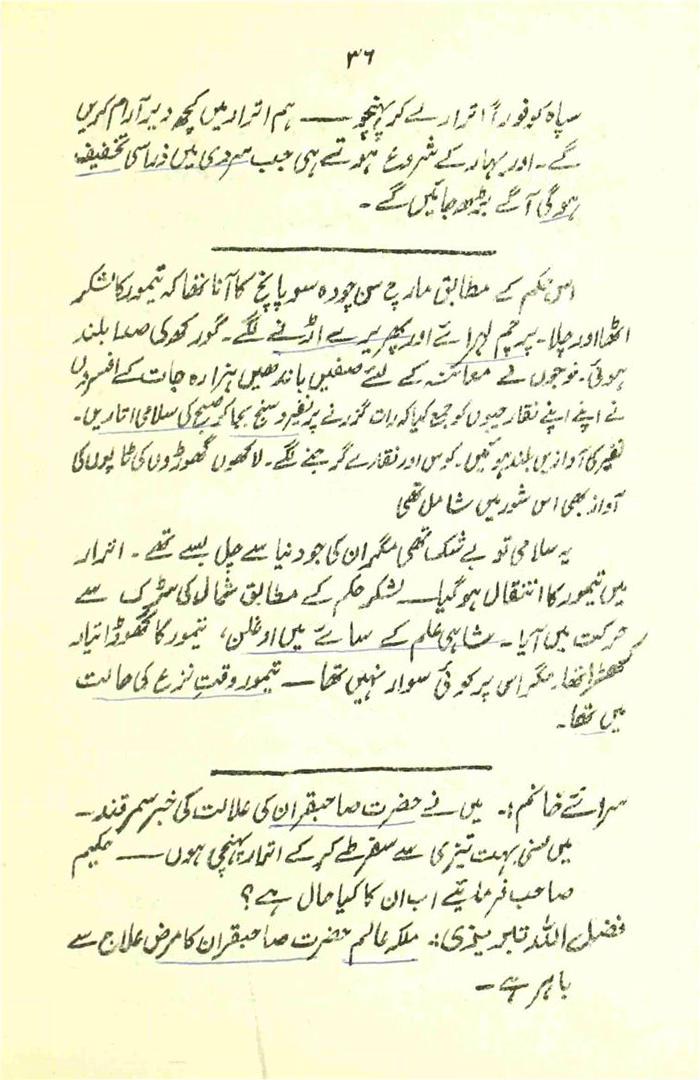 ۳۶
سپاہ کو فوراً اترار لے کر پہنچو ــــ ہم اترار میں کچھ دیر آرام کریں
گے۔ اور بہار کے شروع ہوتے ہی جب سردی میں ذرا سی تخفیف
ہوگی آگے بڑھ جائیں گے۔
اس حکم کے مطابق مارچ سن چودہ سو پانچ کا آنا تھا کہ تیمور کا لشکر
اٹھا اور چلا۔ پرچم لہرائے اور پھریرے اڑنے لگے۔ گورکھ کی صدا بلند
ہوئی۔ فوجوں نے معائنہ کے لئے صفیں باندھیں ہزارہ جات کے افسروں
نے اپنے اپنے نقارچیوں کو جمع کیا کہ رات گزرنے پر نفیر و سنج بجا کر صبح کی سلامی اتاریں۔
نفیر کی آوازیں بلند ہوئیں۔ کوس اور نقارے گرجنے لگے۔ لاکھوں گھوڑوں کی ٹاپوں کی
آواز بھی اس شور میں شامل تھی
یہ سلامی تو بے شک تھی مگر ان کی جو دنیا سے چل بسے تھے۔ اترار
میں تیمور کا انتقال ہو گیا ــــ لشکر حکم کے مطابق شمال کی سڑک سے
حرکت میں آیا۔ شاہی علم کے سائے میں اوغلن، تیمور کا گھوڑا تیار
کھڑا تھا۔ مگر اس پر کوئی سوار نہیں تھا ــــ تیمور وقتِ نزع کی حالت
میں تھا۔
سرائے خانم :۔ میں نے حضرت صاحبقران کی علالت کی خبر سمرقند۔
میں سنی بہت تیزی سے سفر طے کر کے اترار پہنچی ہوں ــــ حکیم
صاحب فرمائیے اب ان کا کیا حال ہے؟
فضل اللہ تبریزی :۔ ملکہ عالم حضرت صاحبقران کا مرض علاج سے
باہر ہے۔